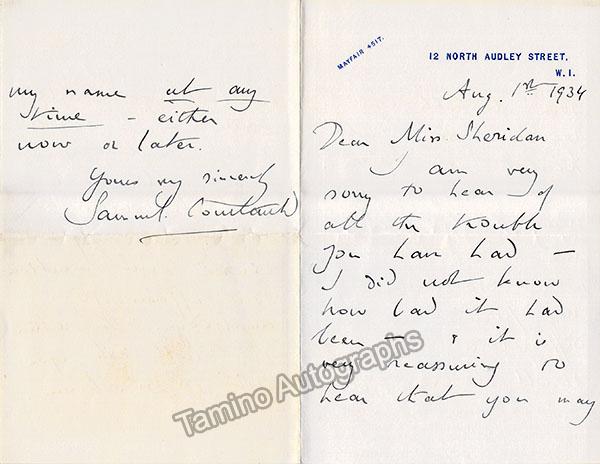 MAYFAIR 4517.
12 NORTH AUDLEY STREET.
W. 1.
Aug. 1st 1934
Dear Miss Sheridan
I am very
sorry to hear of
all the trouble
you have had —
I did not know
how bad it had
been — & it is
very reassuring to
hear that you may
my name at any
time - either
now or later.
Yours very sincerely
Samuel Courtauld
Tamino Autographs